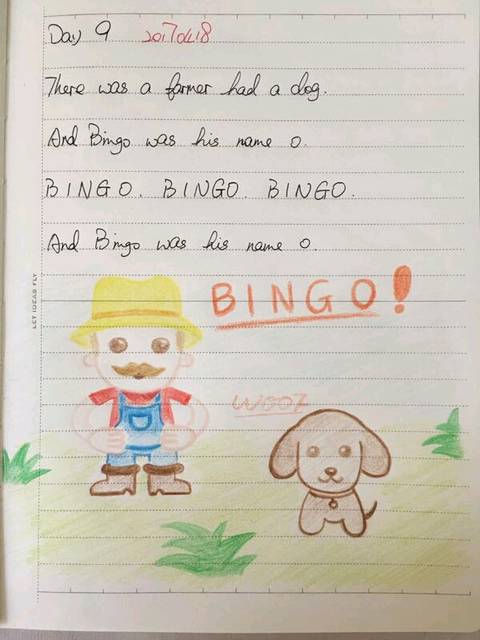 Day 9 20170418
There was a farmer had a dog.
And Bingo was his name o.
BINGO. BINGO. BINGO.
And Bingo was his name o.
BINGO!
WOOZ
LET IDEAS FLY